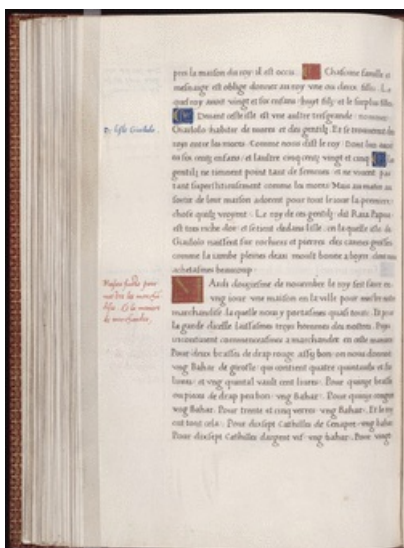 pres la maison du roy il est occis. Chascune famille et
mesnage est oblige donner au roy une ou deux filles. Le
quel roy avoit vingt et six enfans huyt filz et le surplus filles.
Devant ceste isle est une aultre tresgrande nommee
De lisle Giailolo.
Giailolo habitee de mores et des gentilz. Et se trouverent deux
roys entre les mores. Comme nous dist le roy. Dont lun avoit
eu six centz enfans et laultre cinq centz vingt et cinq. Les
gentilz ne tiennent point tant de femmes et ne vivent pas
tant superstitieusement comme les mores. Mais au matin au
sortir de leur maison adorent pour tout le iour la premiere
chose quilz voyent. Le roy de ces gentilz dit Raia Papua
est tres riche dor et se tient dedans lisle. en laquelle isle de
Giailolo naissent sur rochiers et pierres des cannes grosses
comme la iambe pleines deau moult bonne a boyre dont nous
achetasmes beaucoup.
Maison faicte pour
mettre les marchan
dise. Et la maniere
de marchander.
Mardi douziesme de novembre le roy feit faire en
ung iour une maison en la ville pour mettre nostre
marchandise la quelle nous y portasmes quasi toute. Et pour
la garde dicelle laissasmes troys hommes des nostres. Puys
incontinent commenceasmes a marchander en ceste maniere
Pour deux brasses de drap rouge assy bon on nous donnoit
ung Bahar de girofle qui contient quatre quintaulx et six
livres et ung quintal vault cent livres. Pour quinze brasses
ou pieces de drap peu bon ung Bahar. Pour quinze congnees
ung Bahar. Pour trente et cinq verres ung Bahar. Et le roy
eut tout cela. Pour dixsept Cathilles de Cenapre ung bahar
Pour dixsept Cathilles dargent vif ung bahar. Pour vingt